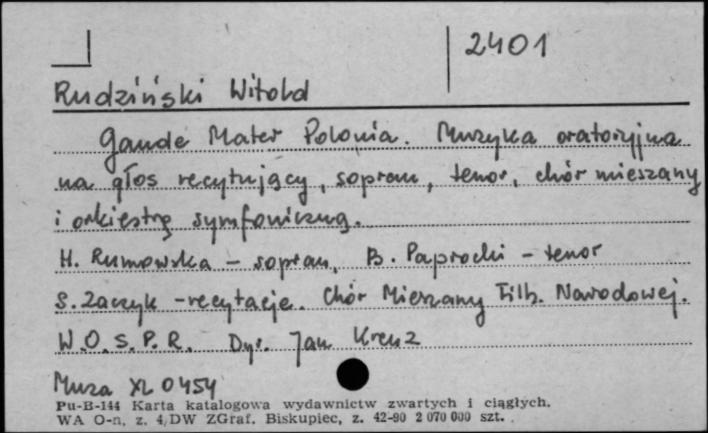 2401
Rudziński Witold
Gaude Mater Polonia. Muzyka oratoryjna
na głos recytujący, sopran, tenor, chór mieszany
i orkiestrę symfoniczną.
H. Rumowska - sopran, B. Paprocki - tenor
S. Zaczyk - recytacje. Chór Mieszany Filh. Narodowej.
W.O.S.P.R. Dyr. Jan Krenz
Muza XL 0454
Pu-B-144 Karta katalogowa wydawnictw zwartych i ciągłych.
WA O-n, z. 4/DW ZGraf. Biskupiec, z. 42-90 2 070 000 szt.